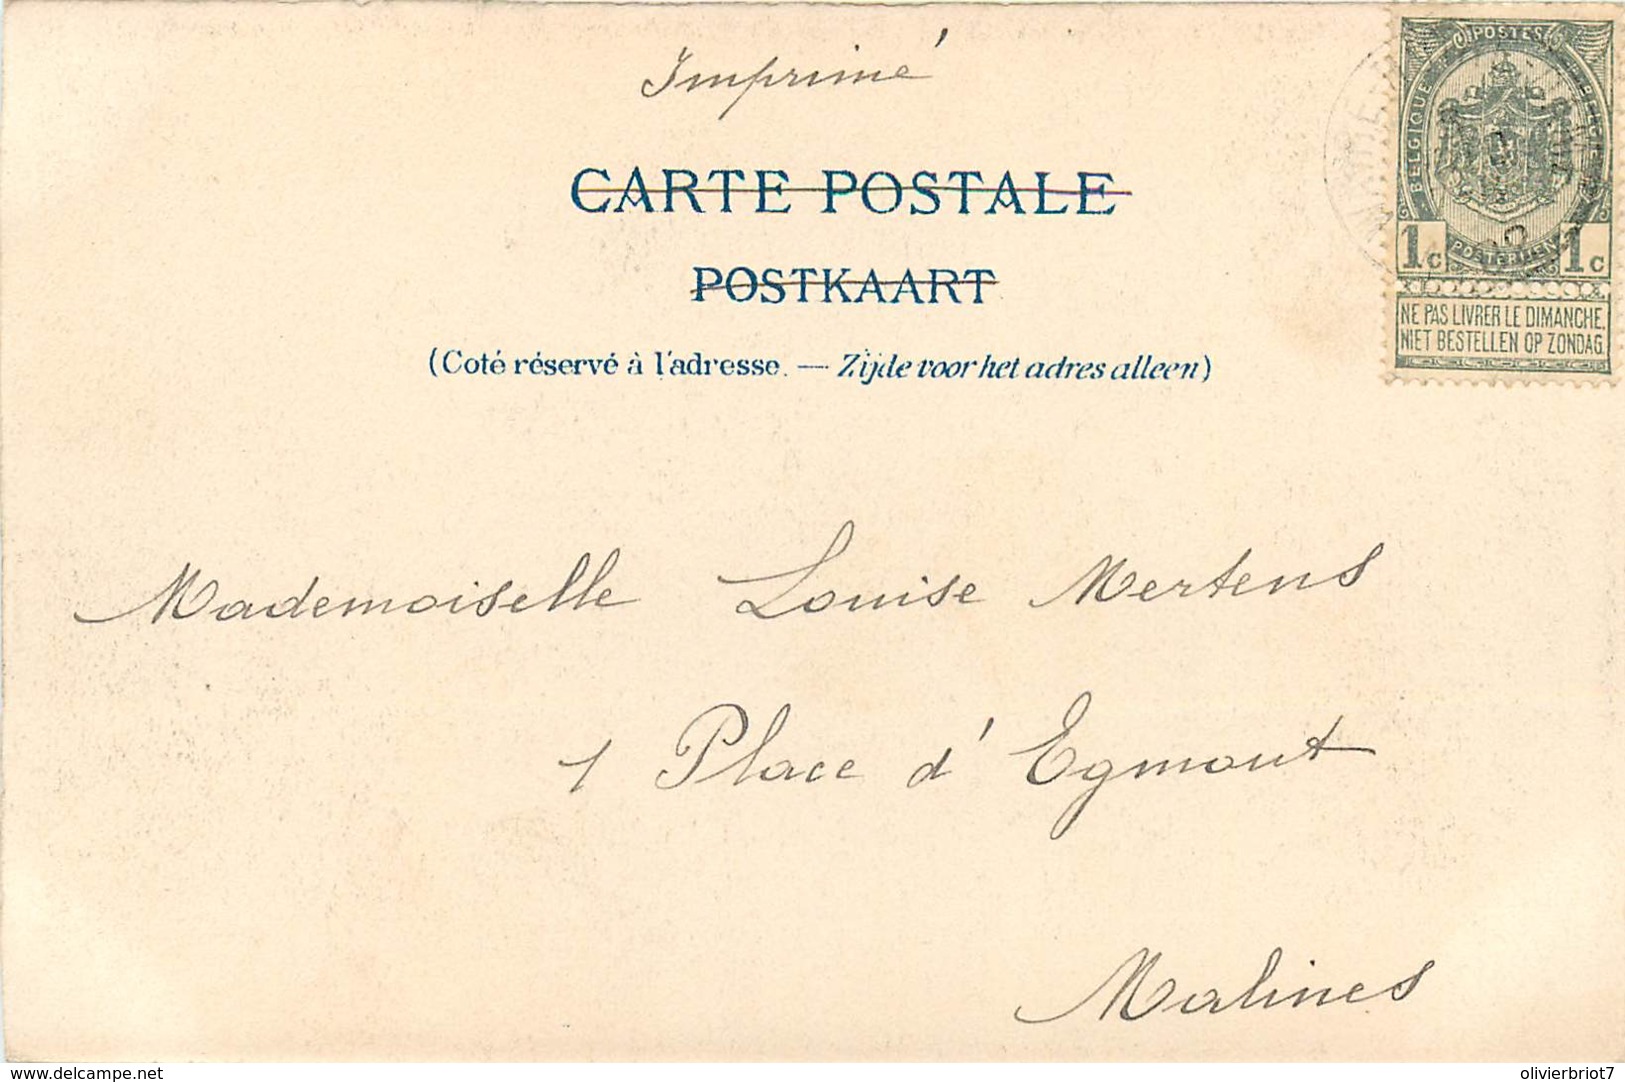 Imprimé
CARTE POSTALE
POSTKAART
(Coté réservé à l'adresse. — Zijde voor het adres alleen)
POSTES
BELGIQUE
POSTERIJEN
1c 1c
NE PAS LIVRER LE DIMANCHE.
NIET BESTELLEN OP ZONDAG
Mademoiselle Louise Mertens
1 Place d'Egmont
Malines
www.delcampe.net
olivierbriot7